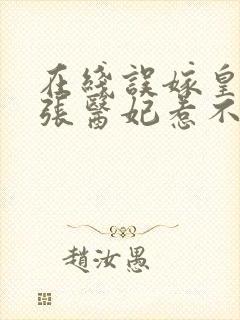 在綫誤嫁皇
張醫妃惹不
趙汝愚